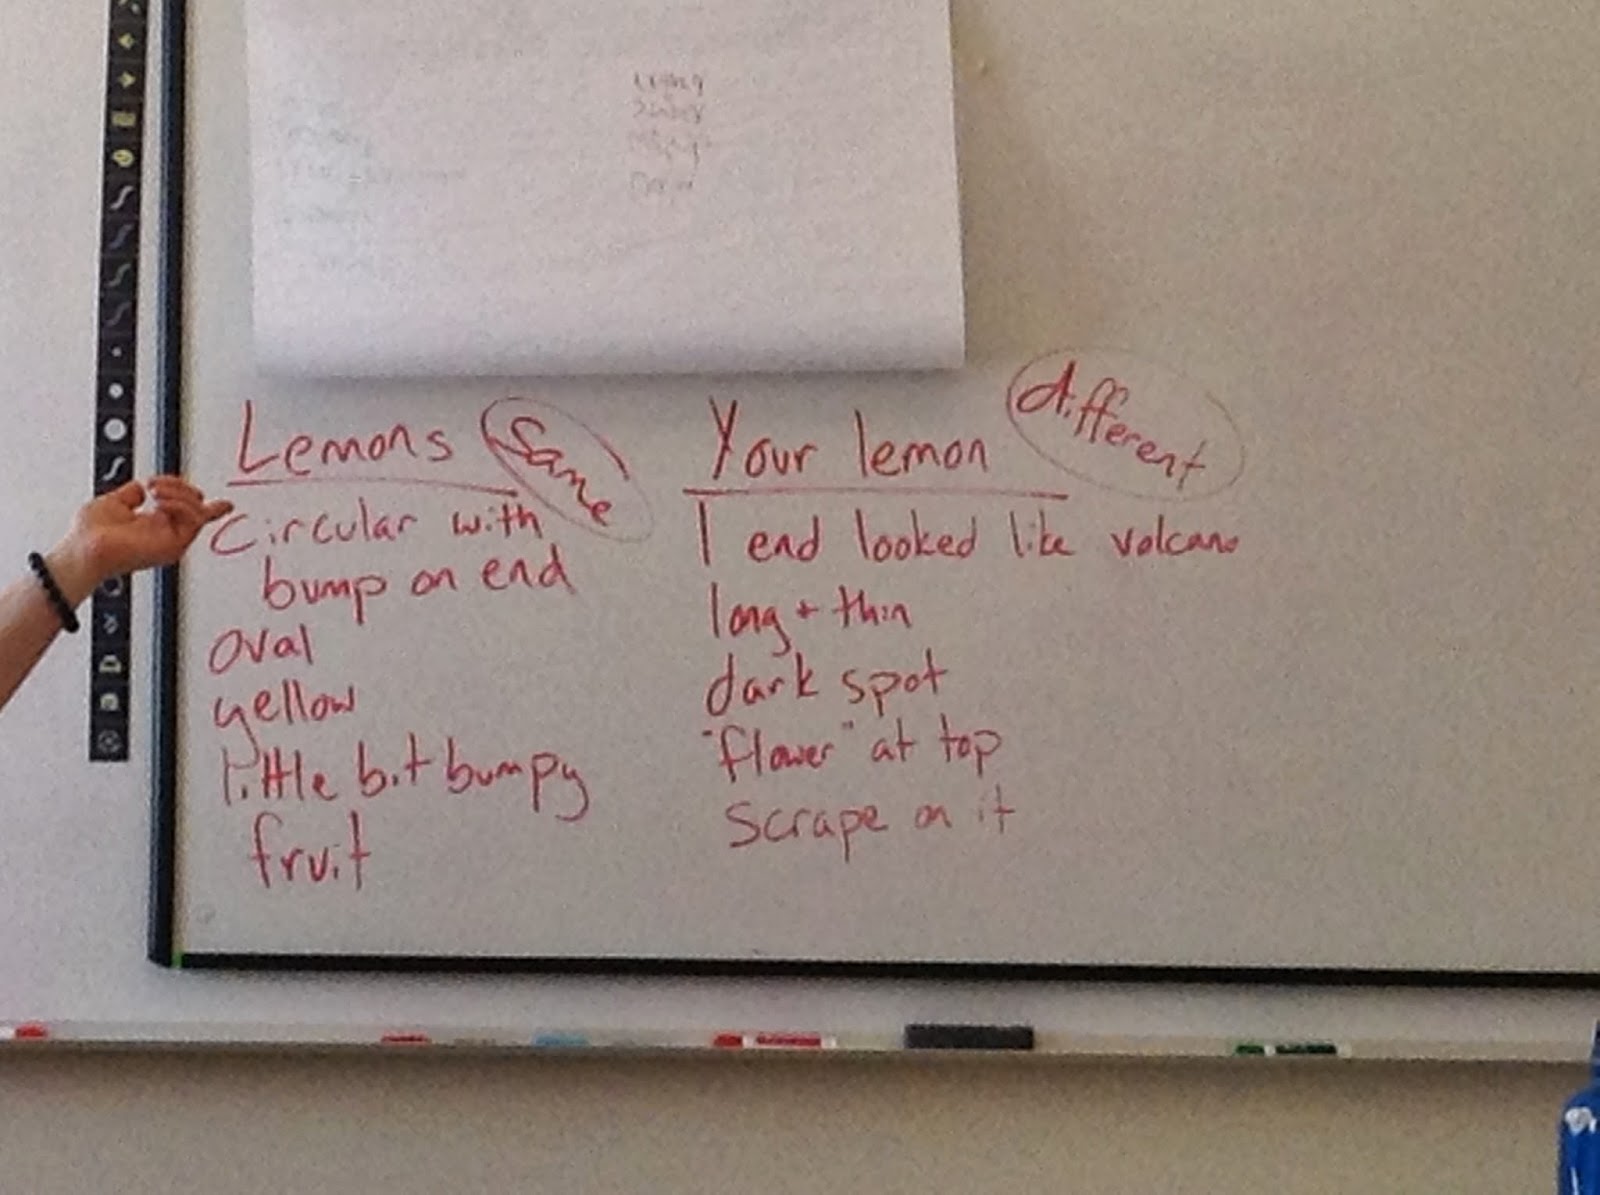 Lemons same
Circular with
bump on end
oval
yellow
little bit bumpy
fruit
Your lemon different
1 end looked like volcano
long + thin
dark spot
"flower" at top
Scrape on it